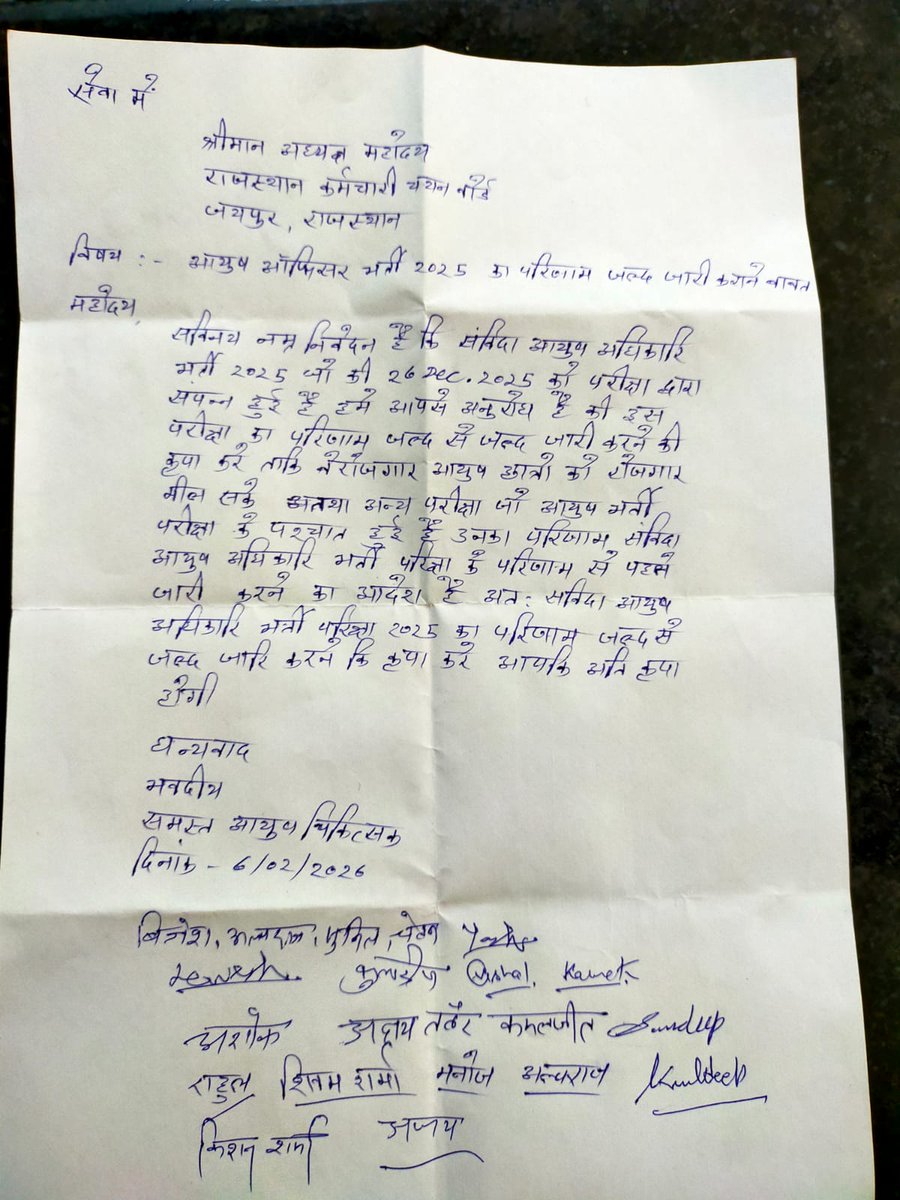 सेवा में
श्रीमान अध्यक्ष महोदय
राजस्थान कर्मचारी चयन बोर्ड
जयपुर, राजस्थान
विषय :- आयुष ऑफिसर भर्ती 2025 का परिणाम जल्द जारी कराने बाबत
महोदय,
सविनय नम्र निवेदन है कि संविदा आयुष अधिकारि
भर्ती 2025 जो की 26 Dec. 2025 को परीक्षा द्वारा
संपन्न हुई है हमे आपसे अनुरोध है की इस
परीक्षा का परिणाम जल्द से जल्द जारी करने की
कृपा करे ताकि बेरोजगार आयुष छात्रो को रोजगार
मील सके अतथा अन्य परीक्षा जो आयुष भर्ती
परीक्षा के पश्चात हुई है उनका परिणाम संविदा
आयुष अधिकारि भर्ती परिक्षा के परिणाम से पहले
जारी करने का आदेश है अत: संविदा आयुष
अधिकारि भर्ती परिक्षा 2025 का परिणाम जल्द से
जल्द जारि करने कि कृपा करे आपकि अति कृपा
होगी
धन्यवाद
भवदीय
समस्त आयुष चिकित्सक
दिनांक - 6/02/2026
कुलदीप Vishal,
अशोक अक्षय तंवर कमलजीत Sundeep
राहुल शिवम शर्मा मनोज अभयराज Kuldeep
किशन शर्मा अजय